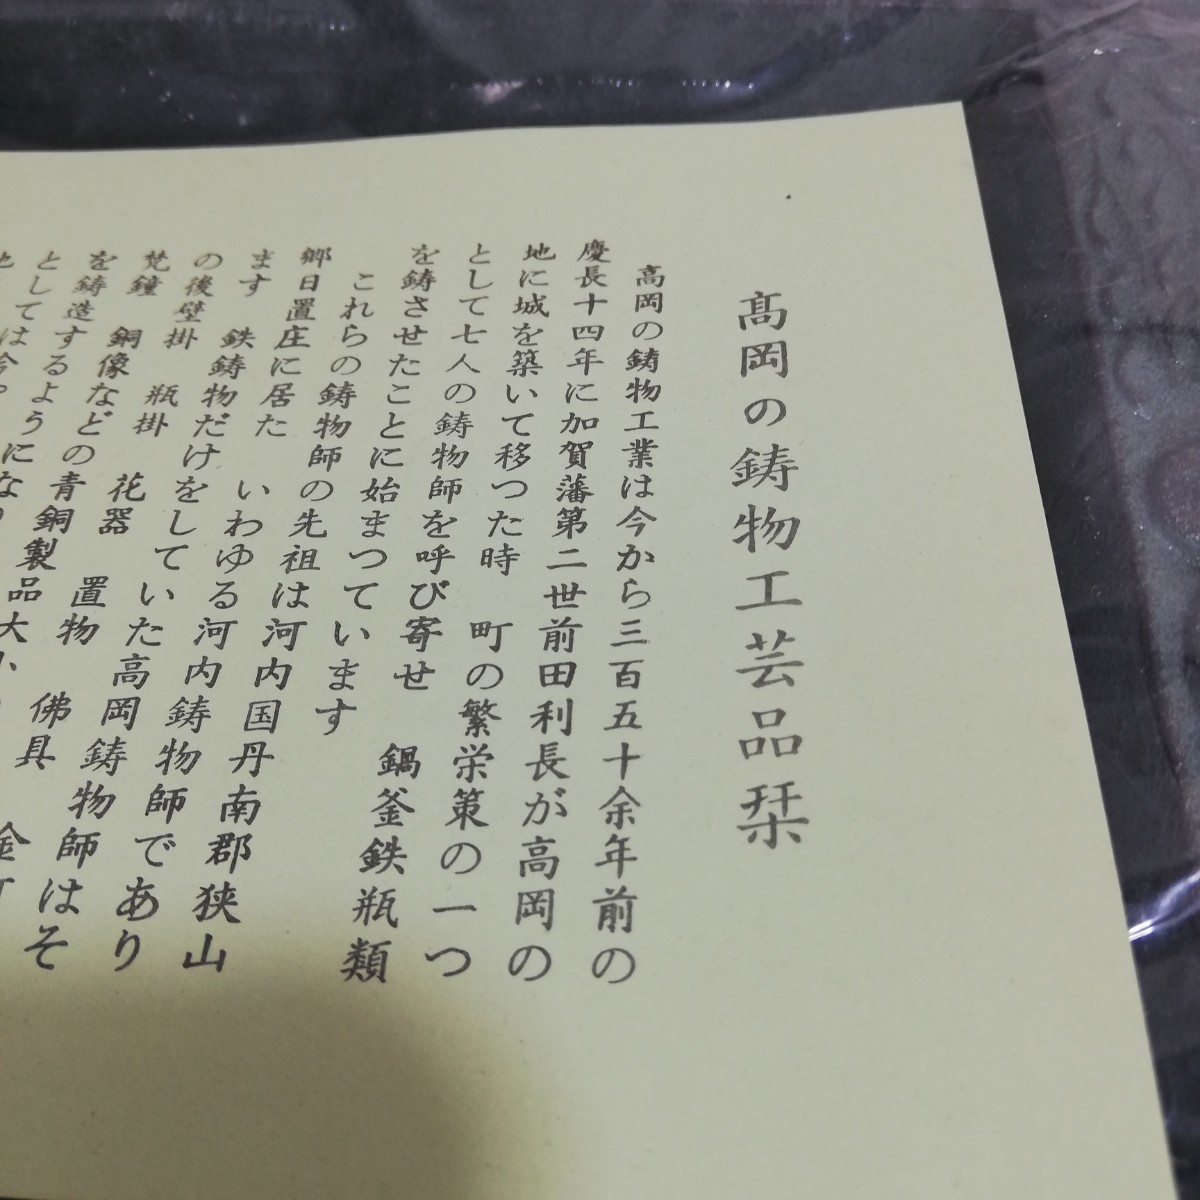 髙岡の鋳物工芸品栞
高岡の鋳物工業は今から三百五十余年前の
慶長十四年に加賀藩第二世前田利長が高岡の
地に城を築いて移つた時　町の繁栄策の一つ
として七人の鋳物師を呼び寄せ　鍋釜鉄瓶類
を鋳させたことに始まつています
これらの鋳物師の先祖は河内国丹南郡狭山
郷日置庄に居た　いわゆる河内鋳物師であり
ます　鉄鋳物だけをしていた高岡鋳物師はそ
の後壁掛　瓶掛　花器　置物　佛具
梵鐘　銅像などの青銅製品大小
を鋳造するようにな
としては今